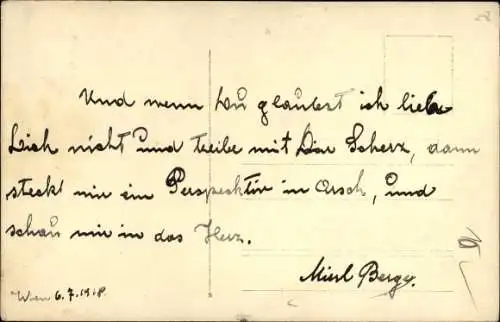 Und wenn Du glaubest ich liebe
Dich nicht und treibe mit Dir Scherz, dann
steck mir ein Perspektiv in Arsch, und
schau mir in das Herz.
Mierl Berger.
Wien 6.7.1918.